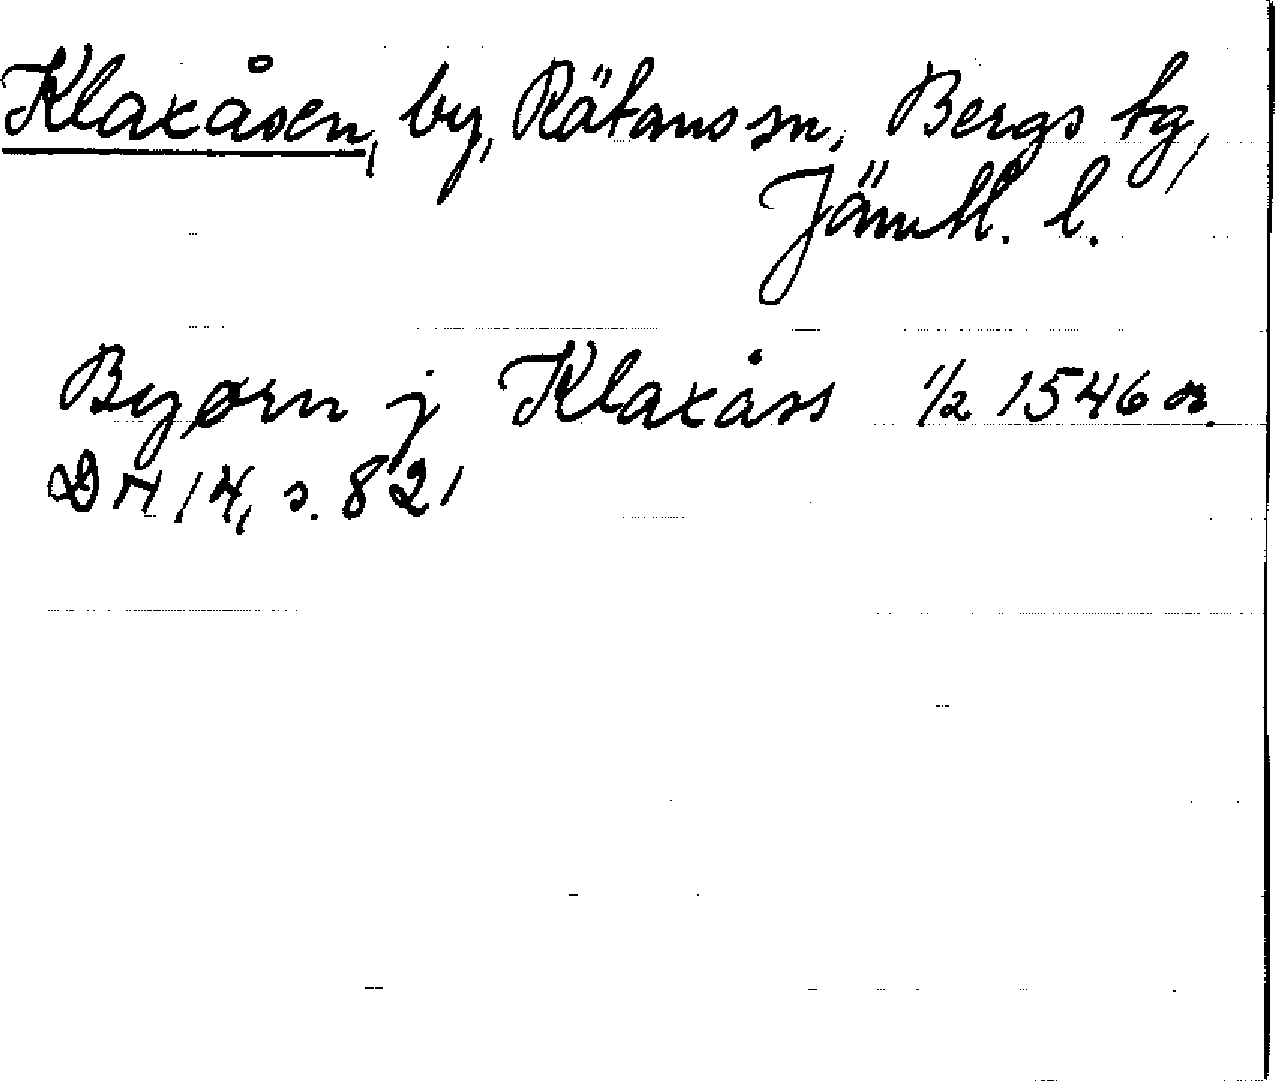 Klaxåsen, by, Rätans sn, Bergs tg,
Jämtl. l.
Byørn j Klaxåss 1/2 1546 or.
DN 14, s. 821